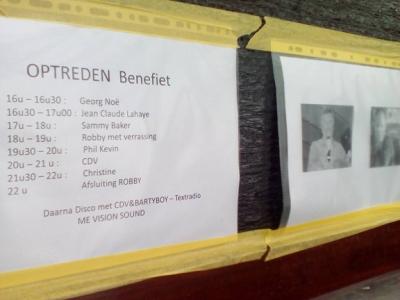 OPTREDEN Benefiet
16u – 16u30 : Georg Noë
16u30 – 17u00 : Jean Claude Lahaye
17u – 18u : Sammy Baker
18u – 19u : Robby met verrassing
19u30 – 20u : Phil Kevin
20u – 21 u : CDV
21u30 – 22u : Christine
22 u Afsluiting ROBBY
Daarna Disco met CDV&BARTYBOY – Textradio
ME VISION SOUND